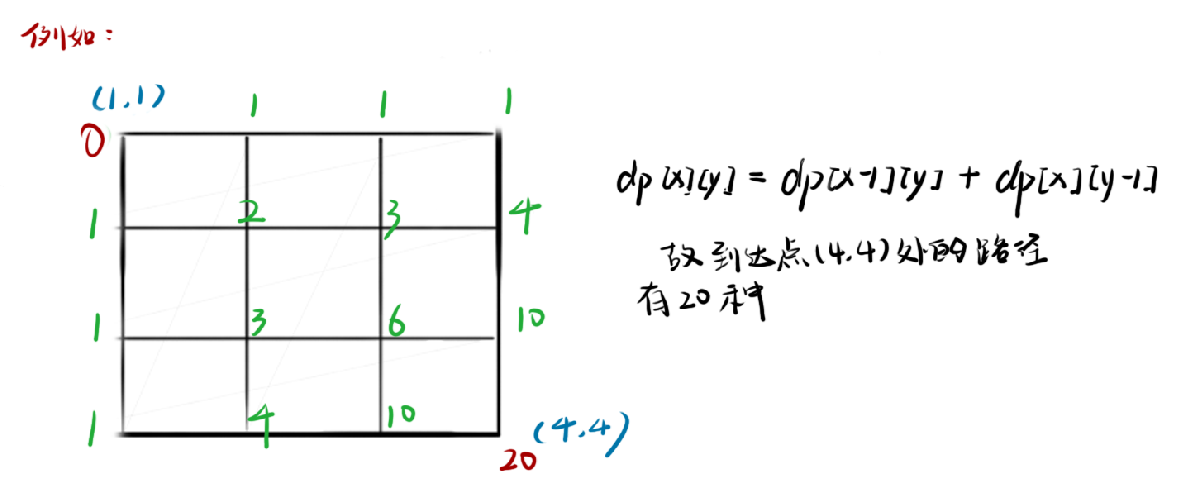 例如：
(1,1) 1 1 1
0
1 2 3 4
1 3 6 10
1 4 10
20 (4,4)
dp[x][y] = dp[x-1][y] + dp[x][y-1]
故到达点(4,4)处的路径
有20种